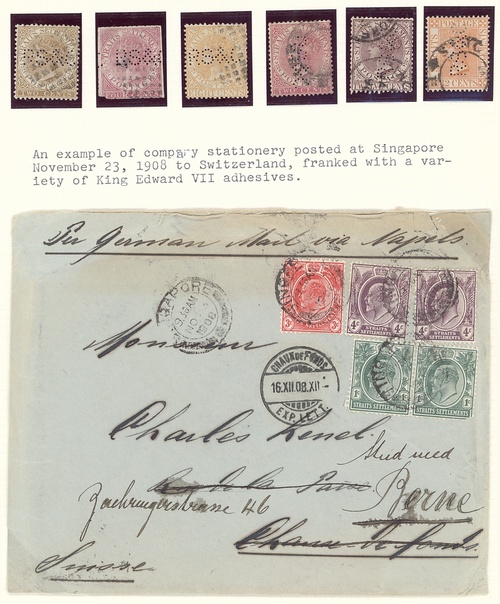 TWO CENTS
EIGHT CENTS
POSTAGE
An example of company stationery posted at Singapore
November 23, 1908 to Switzerland, franked with a var-
iety of King Edward VII adhesives.
Per German Mail via Napels.
GAPORE
1908
3c 4c 4c
STRAITS SETTLEMENTS STRAITS SETTLEMENTS
Monsieur
CHAUX DE FONDS
16.XII.08.XII
EXP. LETT.
1c 1c
STRAITS SETTLEMENTS STRAITS SETTLEMENTS
Charles
Stud med
Rue de la
Zaehringerstrasse 46 Berne
Chaux-de-fonds
Suisse